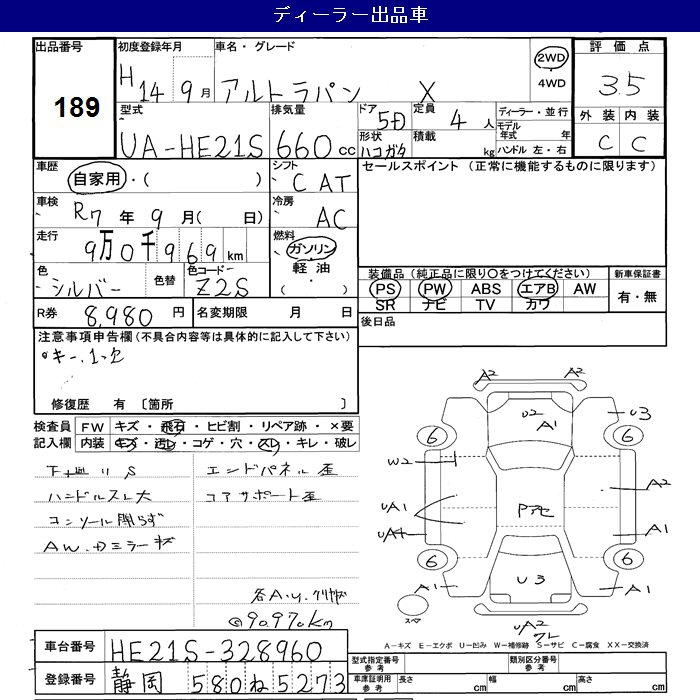 ディーラー出品車
出品番号
189
初度登録年月
H14 9月
車名・グレード
アルトラパン X
2WD
・
4WD
評価点
3.5
型式
UA-HE21S
排気量
660 cc
ドア
5D
定員
4人
形状
ハコガタ
積載
kg
ディーラー・並行
モデル
年式 年
ハンドル 左・右
外装 内装
C C
車歴
自家用・( )
シフト
CAT
セールスポイント (正常に機能するものに限ります)
車検
R7年9月( 日)
冷房
AC
走行
9万0千969km
燃料
ガソリン
軽油
( ・ )
色
シルバー
色替
色コード
Z2S
装備品(純正品に限り○をつけてください)
PS PW ABS エアB AW
SR ナビ TV カワ
新車保証書
有・無
R券 8,980円
名変期限 月 日
後日品
注意事項申告欄(不具合内容等は具体的に記入して下さい)
修復歴 有 〔箇所 〕
検査員
記入欄
FW キズ・飛石・ヒビ割・リペア跡・×要
内装 キズ・汚レ・コゲ・穴・スレ・キレ・破レ
下廻りS
ハンドルスレ大
コンソール閉らず
AW.ドミラーキズ
エンドパネル歪
コアサポート歪
@90,970km
A2 A2
U2 A1 U3
6 6
W2
A2
UA1
Pアセ
UA4 A1
6 6
A1 U3 A1
スペア
UA2
ワレ
A-キズ E-エクボ U-凹み W-補修跡 S-サビ C-腐食 XX-交換済
車台番号 HE21S-328960
登録番号 静岡 580ね5273
型式指定番号
参考
類別区分番号
参考
車庫証明用
参考
長さ cm 幅 cm 高さ cm